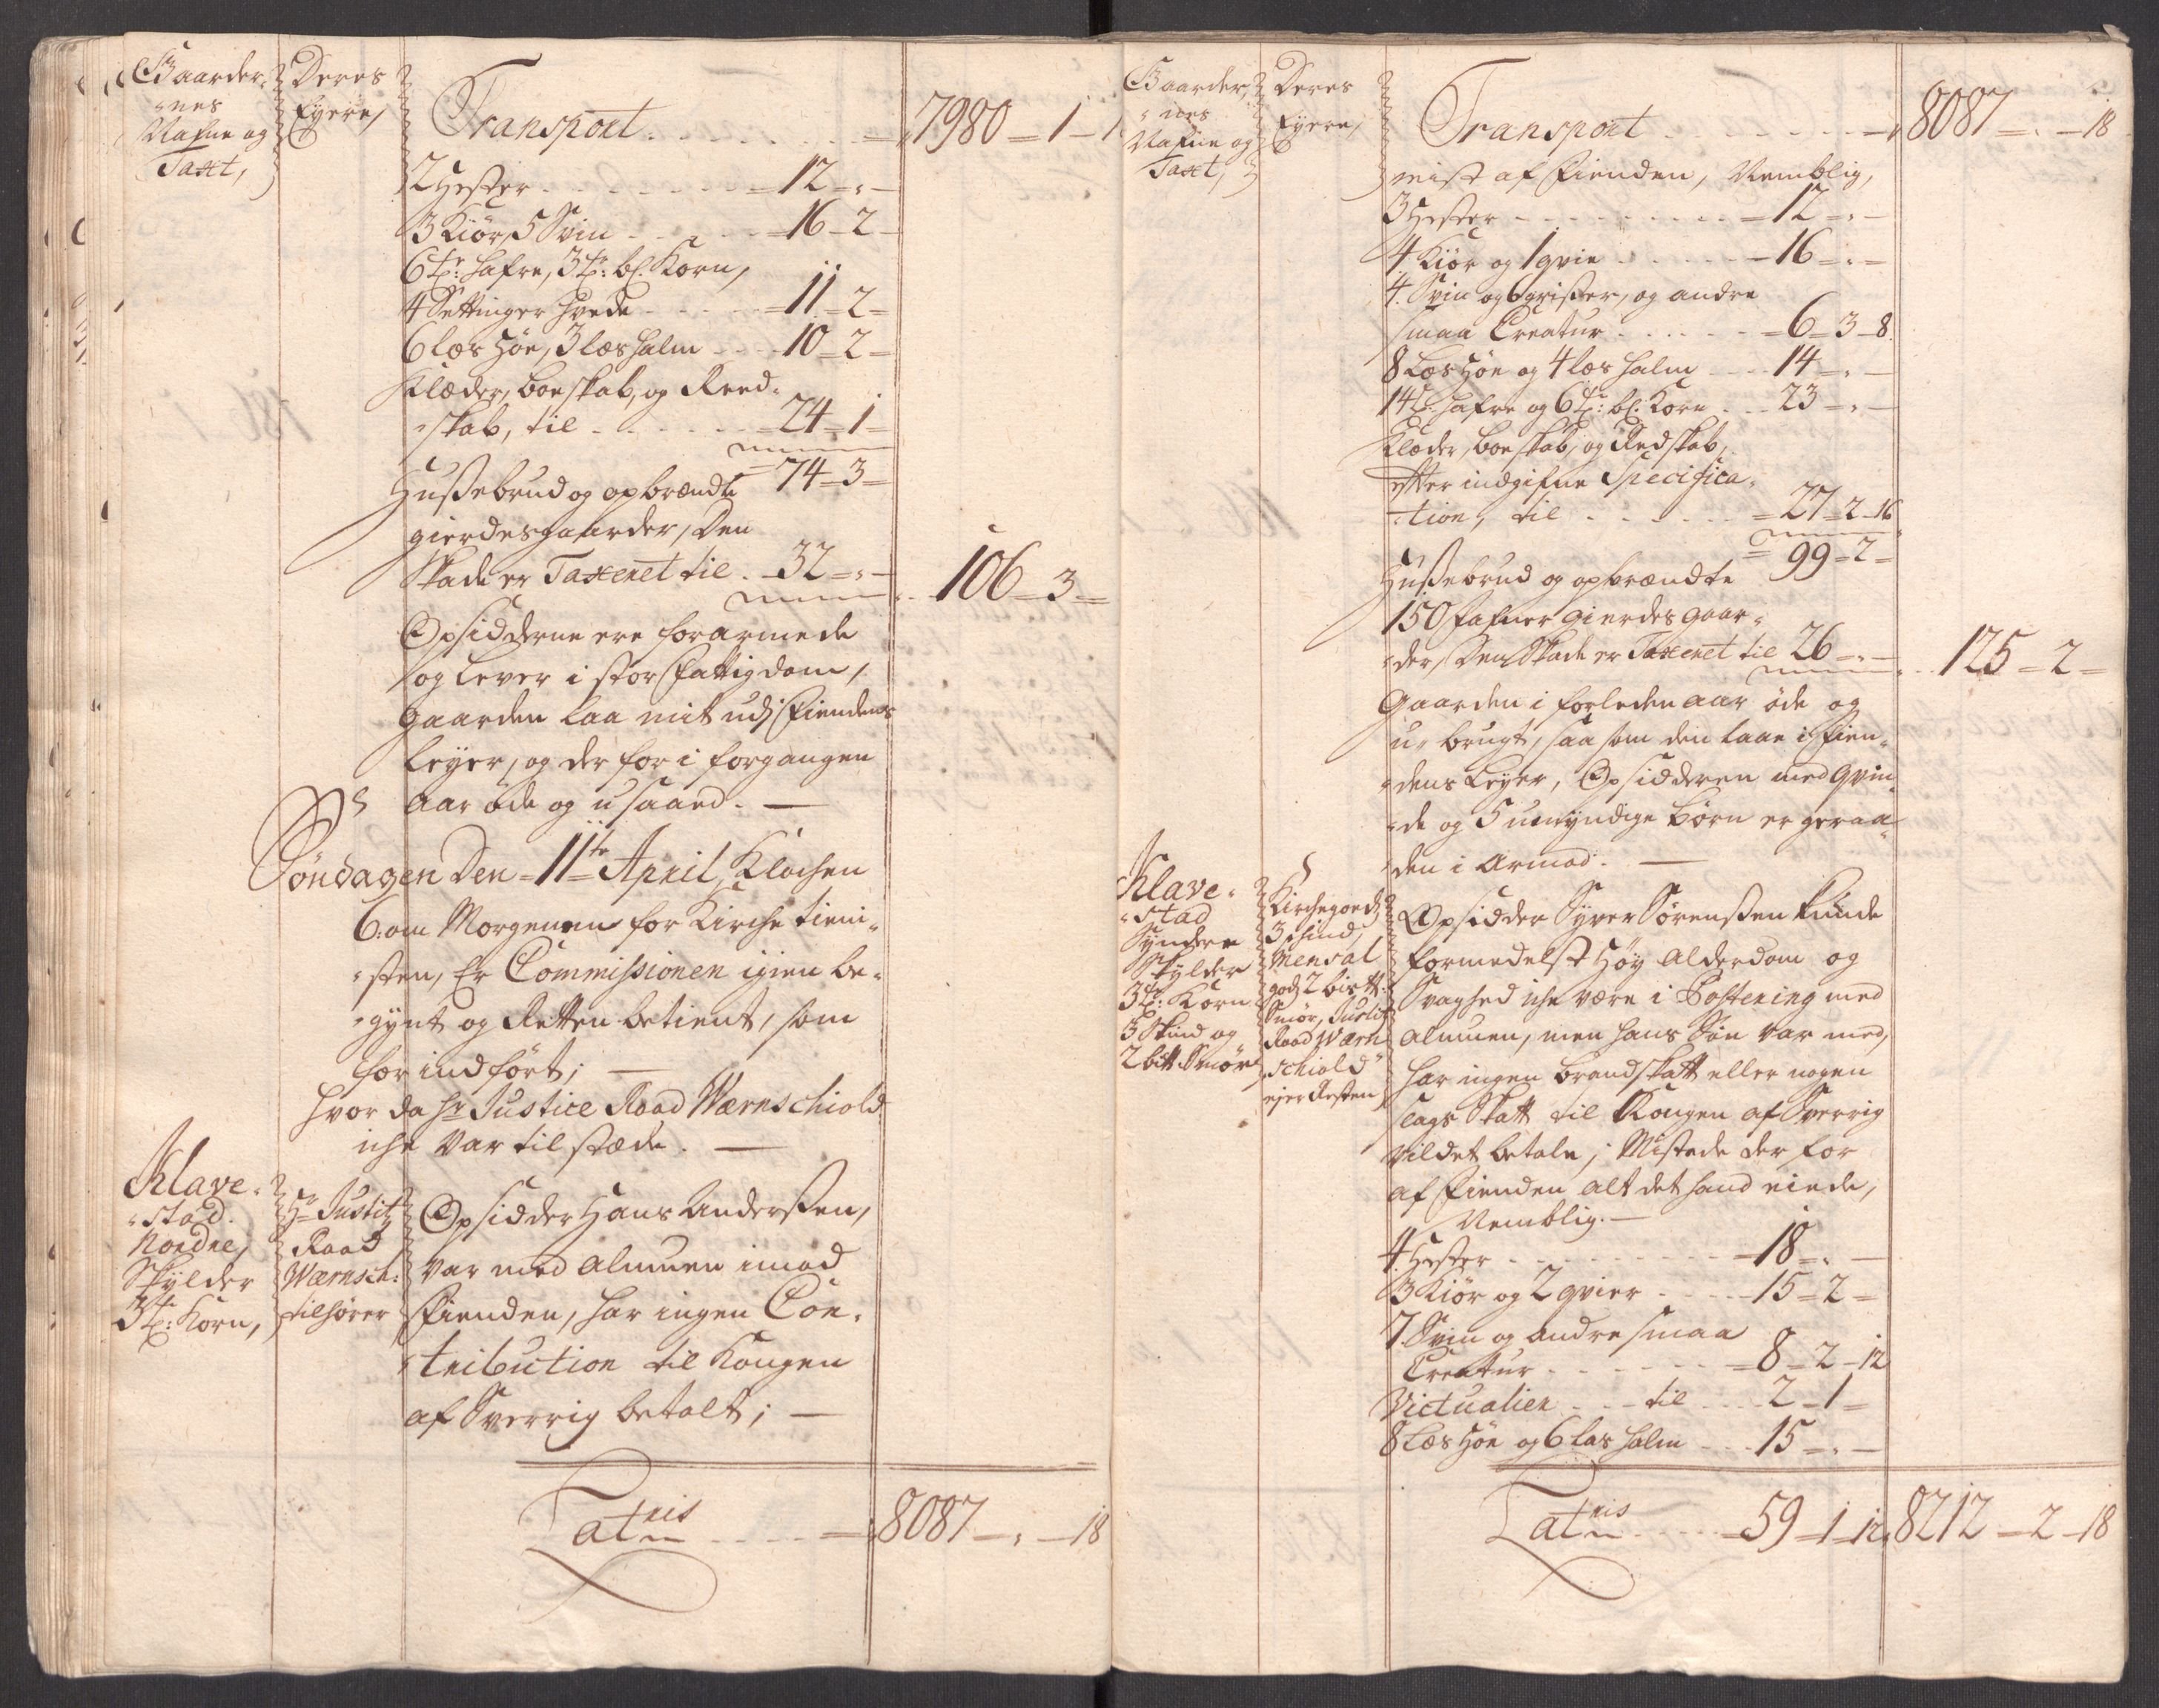 Gaarder-
-nes
Nafne og
Taxt,
Deres
Eyere,
Transport. 7980 - 1 -
2 Hester 12 - " -
3 Kiör, 5 Svin 16 - 2 -
6 tr: hafre, 3 tr: bl. Korn,
4 Settinger hvede 11 - 2 -
6 læs Höe, 3 læs halm 10 - 2 -
Klæder, boeskab, og Reed-
-skab, til 24 - 1 -
74 - 3 -
Hussebrud og opbrændte
gierdesgaarder, Den
Skade er Taxeret til 32 - " - 106 - 3 -
Opsidderne ere forarmede
og lever i stor Fattigdom,
gaarden laa mit udj Fiendens
Leyer, og der for i forgangen
aar öde og u saaed. —
Söndagen Den 11te April, Klochen
6: om Morgenen for Kirche tieni-
-sten, Er Commissionen igien be-
-gynt og Retten betient, som
for indfört; —
hvor da hr Justice Raad Wærnschiold
iche var til stæde. —
Klave-
-stad
Nordre,
Skylder
3 tr: Korn,
Hr Justitz
Raad
Wærnsch:
tilhörer
Opsidder Hans Anderssen,
var med Almuen imod
Fienden, har ingen Con-
-tribution til Kongen
af Sverrig betalt; —
Lateris 8087 - " - 18
Gaarder-
-nes
Nafne og
Taxt,
Deres
Eyere,
Transport 8087 - " - 18
mist af Fienden, Nemblig,
3 Hester 12 - " -
4 Kiör og 1 qvie 16 - " -
4 Svin og 6 grisser, og andre
smaa Creatur 6 - 3 - 8
8 Læs Höe og 4 læs halm 14 - " -
14 tr: hafre og 6 tr: bl. Korn 23 - " -
Klæder, boeskab, og Redskab,
efter indgifne Specifica-
-tion, til 27 - 2 - 16
99 - 2 -
Hussebrud og opbrændte
150 fafner gierdesgaar-
-der, Den Skade er Taxeret til 26 - " - 125 - 2 -
Gaarden i forleden aar öde og
u-brugt, saa som den laae i Fien-
-dens Leyer, Opsidderen med qvin-
-de og 5 umyndige börn er geraa-
-den i Armod. —
Klave-
-stad
Syndere
Skylder
3 tr: Korn
3 Skind og
2 bitt Smör
Kirchegodz
3 schind,
Mensal
godz 2 bitt:
Smör, Justitz
Raad Wærn
-schiold
ejer Resten
Opsidder Syver Sörenssen kunde
formedelst Höy Alderdom og
Svaghed iche være i Postering med
almuen, men hans Sön var med,
har ingen brandskatt eller nogen
slags Skatt til Kongen af Sverrig
vildet betale; Mistede der for
af Fienden alt det hand eiede,
Nemblig. —
4. Hester 18 - " -
3 Kiör og 2 qvier 15 - 2 -
7. Svin og andre smaa
Creatur 8 - 2 - 12
Victualier til 2 - 1 -
8 Læs Höe og 6 læs halm 15 - " -
Lateris 59 - 1 - 12 8212 - 2 - 18